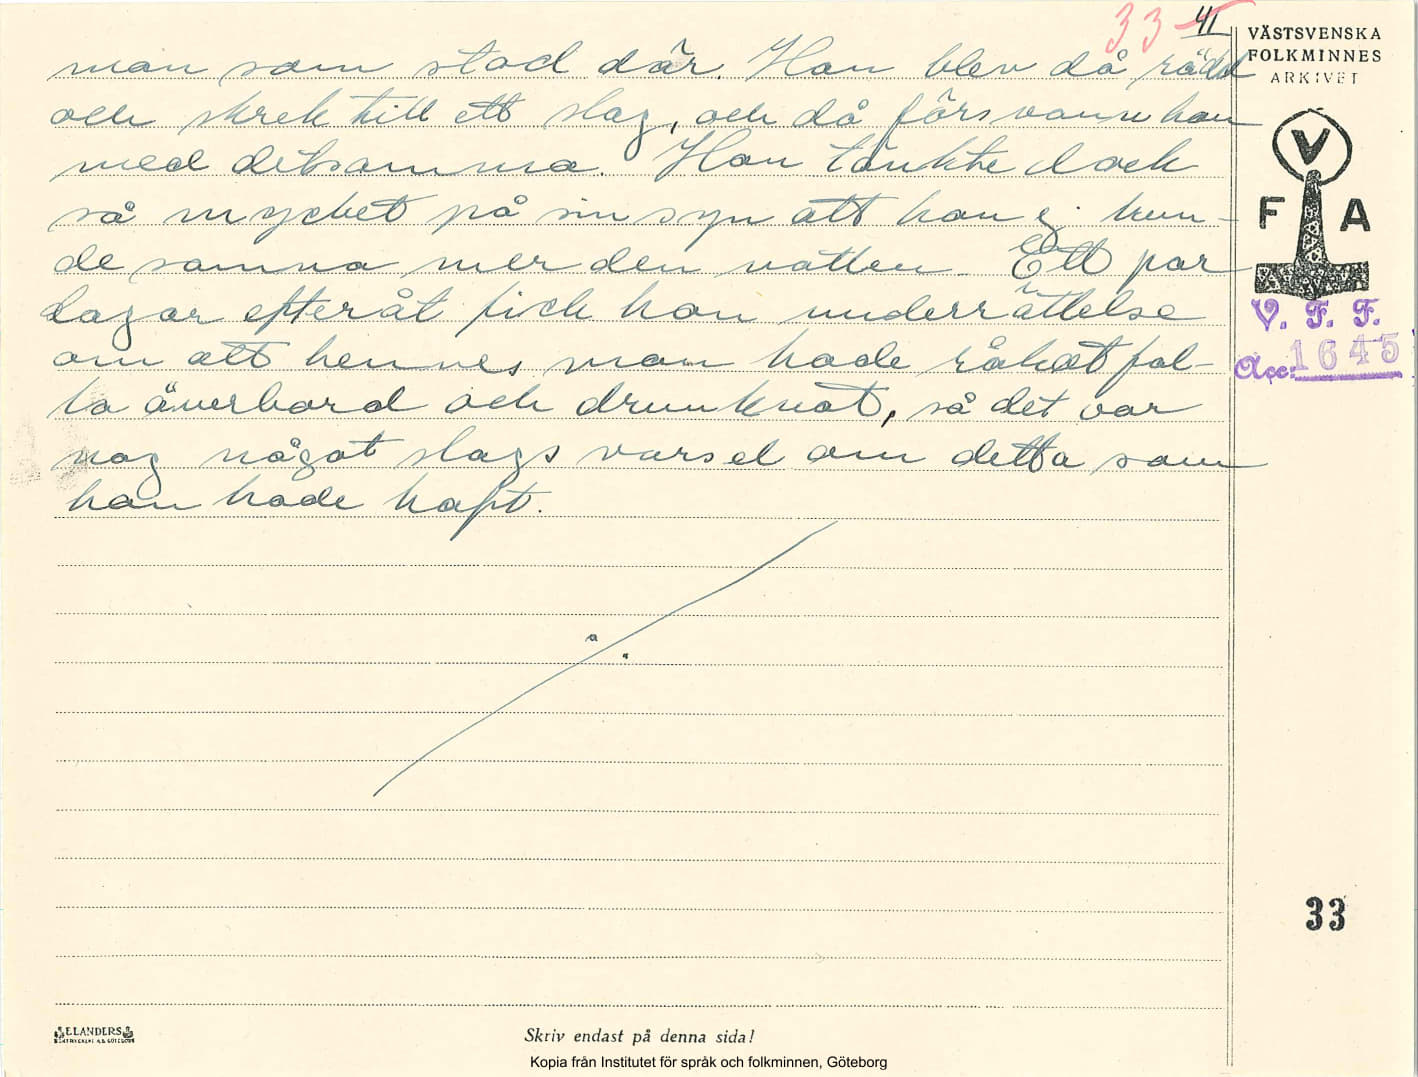 33 41
VÄSTSVENSKA
FOLKMINNES
ARKIVET
man som stod där. Han blev då rädd
och skrek till ett slag, och då försvann han
med detsamma. Han tänkte dock
så mycket på sin syn att han ej kun-
de somna mer den natten. Ett par
dagar efteråt fick han underrättelse
om att hennes man hade råkat fal-
la överbord och drunknat, så det var
nog något slags varsel om detta som
han hade haft.
V
F A
V. F. F.
Acc: 1645
33
ELANDERS
Skriv endast på denna sida!
Kopia från Institutet för språk och folkminnen, Göteborg